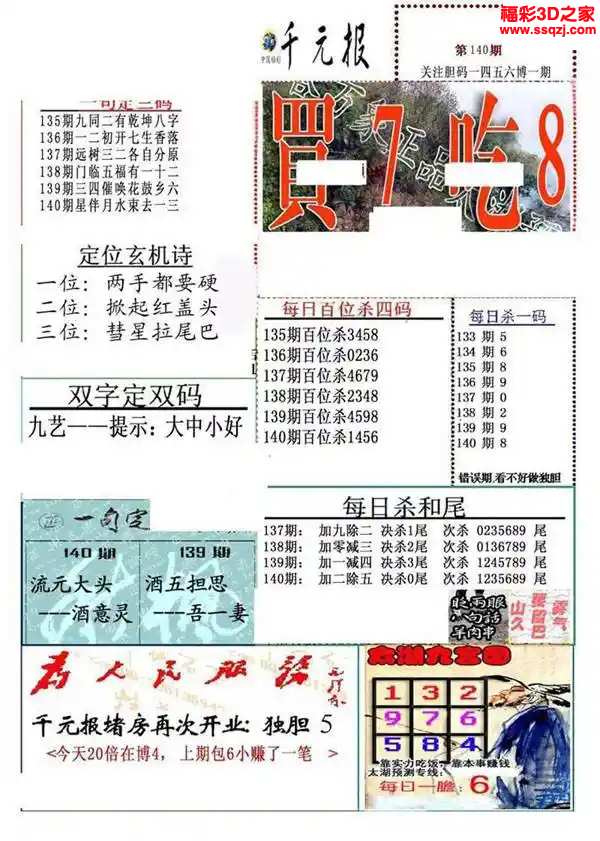 福彩3D之家
www.ssqzj.com
中国福彩
千元报
第140期
关注胆码一四五六博一期
一句定三码
135期九同二有乾坤八字
136期一二初开七生香落
137期远树三二各自分原
138期门临五福有一十二
139期三四催唤花鼓乡六
140期星伴月水束去一三
買7吃8
定位玄机诗
一位：两手都要硬
二位：掀起红盖头
三位：彗星拉尾巴
双字定双码
九艺——提示：大中小好
每日百位杀四码
135期百位杀3458
136期百位杀0236
137期百位杀4679
138期百位杀2348
139期百位杀4598
140期百位杀1456
每日杀一码
133期 5
134期 6
135期 8
136期 9
137期 0
138期 2
139期 9
140期 8
错误期,看不好做独胆
一句定
140期
流元大头
---酒意灵
139期
酒五担思
---吾一妻
每日杀和尾
137期： 加九除二 决杀1尾 次杀 0235689 尾
138期： 加零减三 决杀2尾 次杀 0136789 尾
139期： 加一减四 决杀3尾 次杀 1245789 尾
140期： 加二除五 决杀0尾 次杀 1235689 尾
眼雨服
八句话
羊肉串
山久
要留巴
雾气
为人民服务
千元报堵房再次开业:独胆 5
<今天20倍在博4，上期包6小赚了一笔>
太湖九宫图
1 3 2
9 7 6
5 8 4
靠实力吃饭，靠本事赚钱
太湖预测专线:
每日一胆: 6